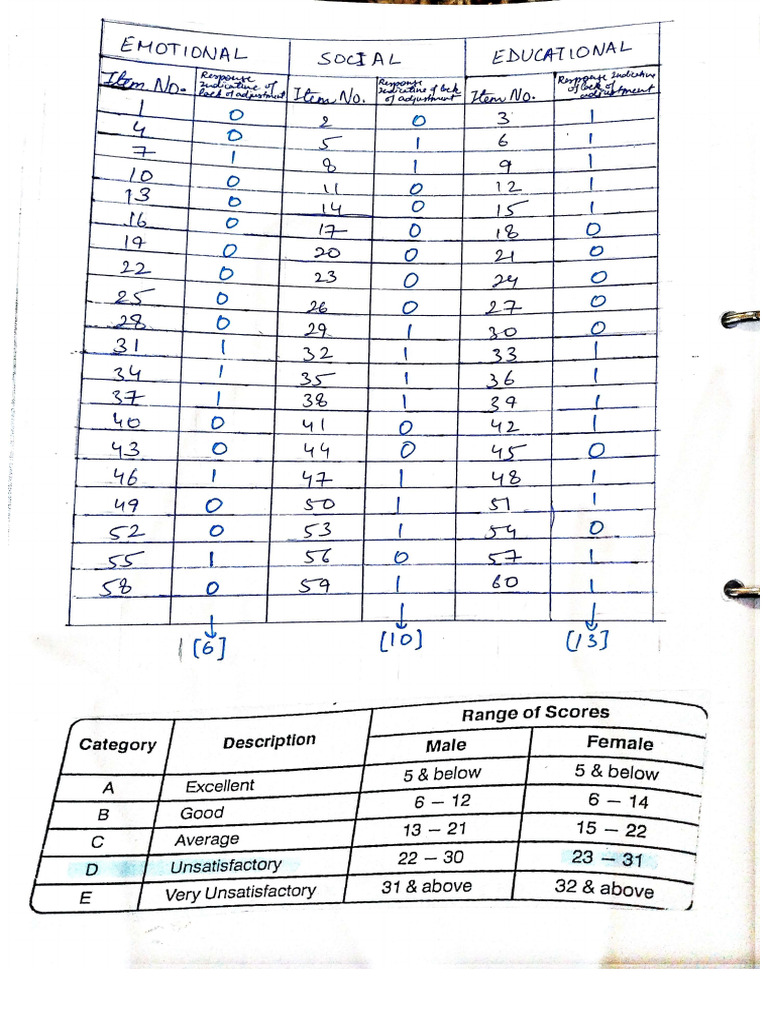 EMOTIONAL SOCIAL EDUCATIONAL
Item No. Response Indicative of lack of adjustment Item No. Response Indicative of lack of adjustment Item No. Response Indicative of lack of adjustment
1 0 2 0 3 1
4 0 5 1 6 1
7 1 8 1 9 1
10 0 11 0 12 1
13 0 14 0 15 1
16 0 17 0 18 0
19 0 20 0 21 0
22 0 23 0 24 0
25 0 26 0 27 0
28 0 29 1 30 0
31 1 32 1 33 1
34 1 35 1 36 1
37 1 38 1 39 1
40 0 41 0 42 1
43 0 44 0 45 0
46 1 47 1 48 1
49 0 50 1 51 1
52 0 53 1 54 0
55 1 56 0 57 1
58 0 59 1 60 1
[6] [10] [13]
Category Description Range of Scores
Male Female
A Excellent 5 & below 5 & below
B Good 6 – 12 6 – 14
C Average 13 – 21 15 – 22
D Unsatisfactory 22 – 30 23 – 31
E Very Unsatisfactory 31 & above 32 & above